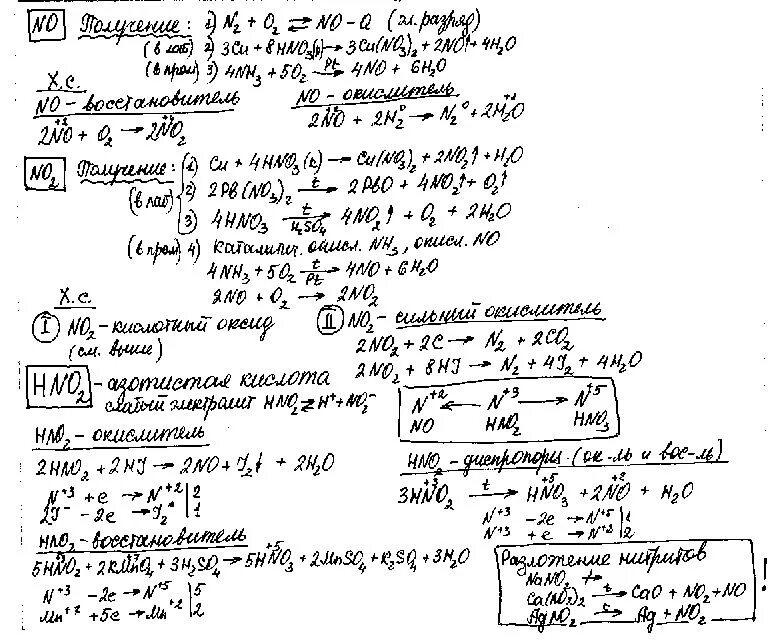 NO Получение: 1) N₂ + O₂ ⇌ NO – Q (эл. разряд)
(в лаб) 2) 3Cu + 8HNO₃(р) → 3Cu(NO₃)₂ + 2NO↑ + 4H₂O
(в пром) 3) 4NH₃ + 5O₂ →(Pt) 4NO + 6H₂O
Х.с.
NO – восстановитель
2N⁺²O + O₂ → 2N⁺⁴O₂
NO – окислитель
2N⁺²O + 2H₂⁰ → N₂⁰ + 2H₂⁺¹O
NO₂ Получение: 1) Cu + 4HNO₃(к) → Cu(NO₃)₂ + 2NO₂↑ + H₂O
(в лаб) 2) 2Pb(NO₃)₂ →(t) 2PbO + 4NO₂↑ + O₂↑
3) 4HNO₃ →(t, H₂SO₄) 4NO₂↑ + O₂ + 2H₂O
(в пром) 4) каталитич. окисл. NH₃, окисл. NO
4NH₃ + 5O₂ →(t, Pt) 4NO + 6H₂O
2NO + O₂ → 2NO₂
Х.с.
I NO₂ – кислотный оксид
(см. выше)
II NO₂ – сильный окислитель
2NO₂ + 2C → N₂ + 2CO₂
2NO₂ + 8HJ → N₂ + 4J₂ + 4H₂O
HNO₂ – азотистая кислота
слабый электролит HNO₂ ⇌ H⁺ + NO₂⁻
N⁺² ← N⁺³ → N⁺⁵
NO HNO₂ HNO₃
HNO₂ – окислитель
2HNO₂ + 2HJ → 2NO + J₂↓ + 2H₂O
N⁺³ + e → N⁺² | 2
2J⁻ – 2e → J₂⁰ | 1
HNO₂ – диспропорц. (ок-ль и вос-ль)
3HN⁺³O₂ →(t) HN⁺⁵O₃ + 2N⁺²O + H₂O
N⁺³ – 2e → N⁺⁵ | 1
N⁺³ + e → N⁺² | 2
HNO₂ – восстановитель
5HN⁺³O₂ + 2KMn⁺⁷O₄ + 3H₂SO₄ → 5HN⁺⁵O₃ + 2MnSO₄ + K₂SO₄ + 3H₂O
N⁺³ – 2e → N⁺⁵ | 5
+5e → Mn⁺² | 2
Разложение нитритов !
NaNO₂ ↛
Ca(NO₂)₂ →(t) CaO + NO₂ + NO
AgNO₂ →(t) Ag + NO₂